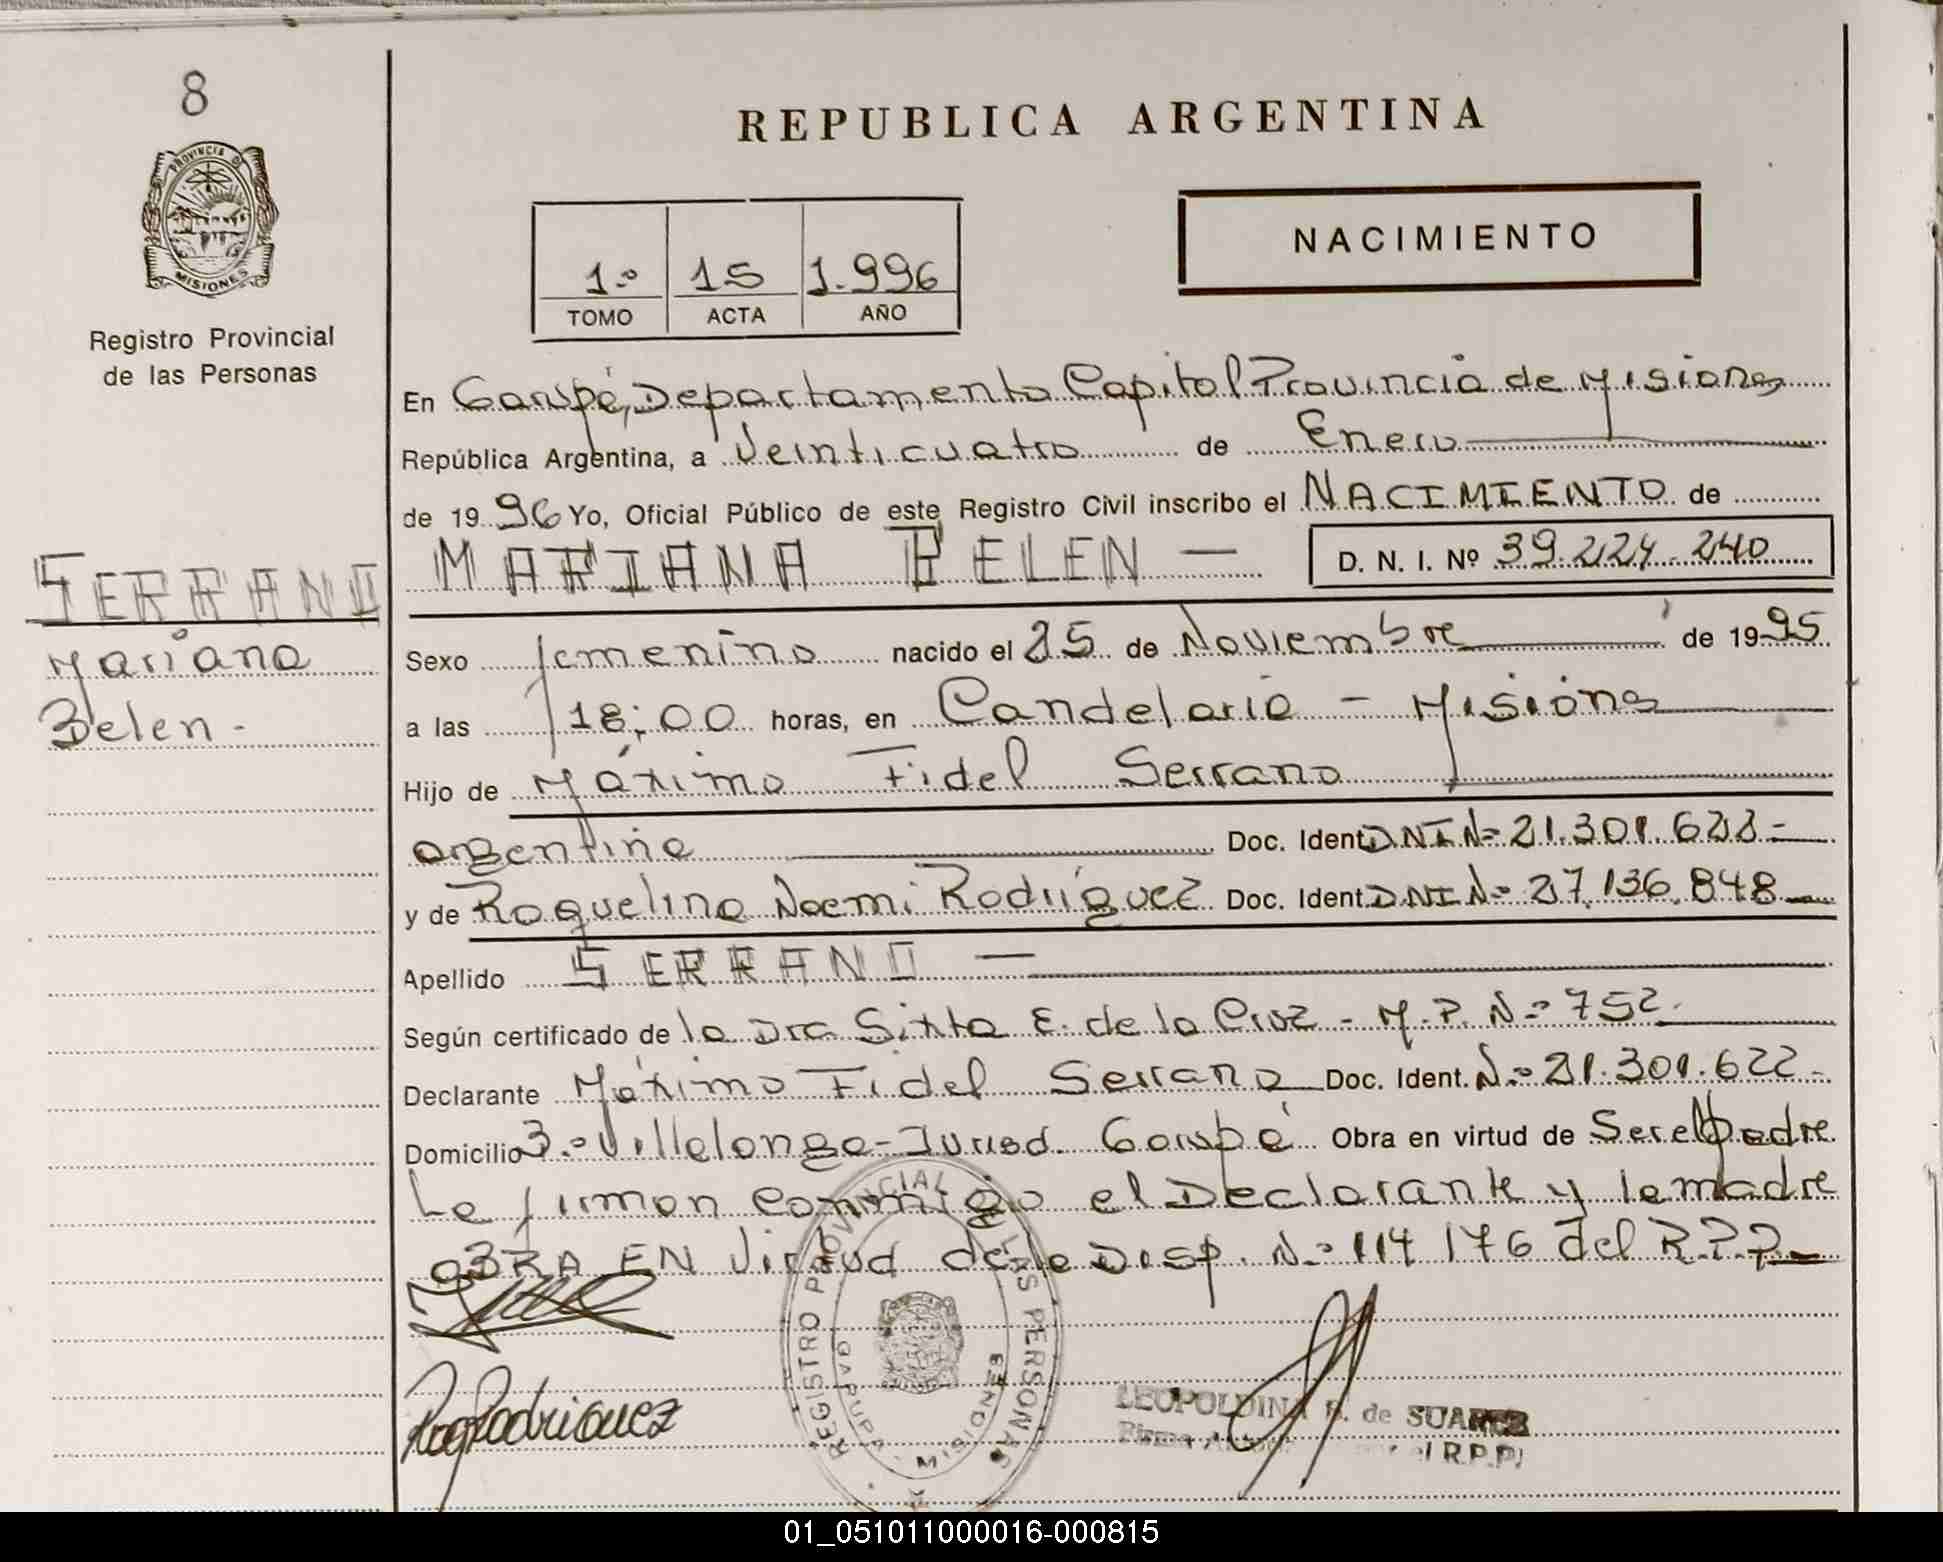 8
REPUBLICA ARGENTINA
PROVINCIA DE MISIONES
NACIMIENTO
1º 15 1.996
TOMO ACTA AÑO
Registro Provincial
de las Personas
En Garupá, Departamento Capital Provincia de Misiones
República Argentina, a Veinticuatro de Enero
de 1996 Yo, Oficial Público de este Registro Civil inscribo el NACIMIENTO de
MARIANA BELEN — D. N. I. Nº 39.224.240
SERRANO
Mariana
Belen -
Sexo femenino nacido el 25 de Noviembre de 1995
a las 18:00 horas, en Candelaria - Misiones
Hijo de Máximo Fidel Serrano
argentina Doc. Ident. DNI Nº 21.301.622-
y de Raquelina Noemi Rodríguez Doc. Ident. DNI Nº 27.136.848-
Apellido SERRANO —
Según certificado de la Dra Sixta E. de la Cruz - M.P. Nº 752.
Declarante Máximo Fidel Serrano Doc. Ident. Nº 21.301.622-
Domicilio Bº Villalonga - Jurisd. Garupá Obra en virtud de Ser el Padre
Le firman conmigo el Declarante y la madre
OBRA EN Virtud de la Disp. Nº 114/76 del R.P.P.
RagRodriguez
REGISTRO PROVINCIAL DE LAS PERSONAS
GARUPA MISIONES
LEOPOLDINA R. de SUAREZ
el R.P.P.
01_051011000016-000815